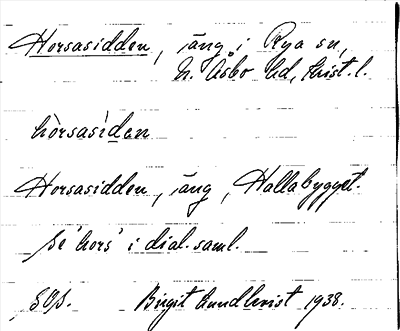 Horsasidden, äng i Rya sn,
N. Åsbo hd, Krist. l.
hòrsasìdan
Horsasidden, äng, Hallabygget.
se 'hors' i dial. saml.
Birgit Lundkvist 1938.